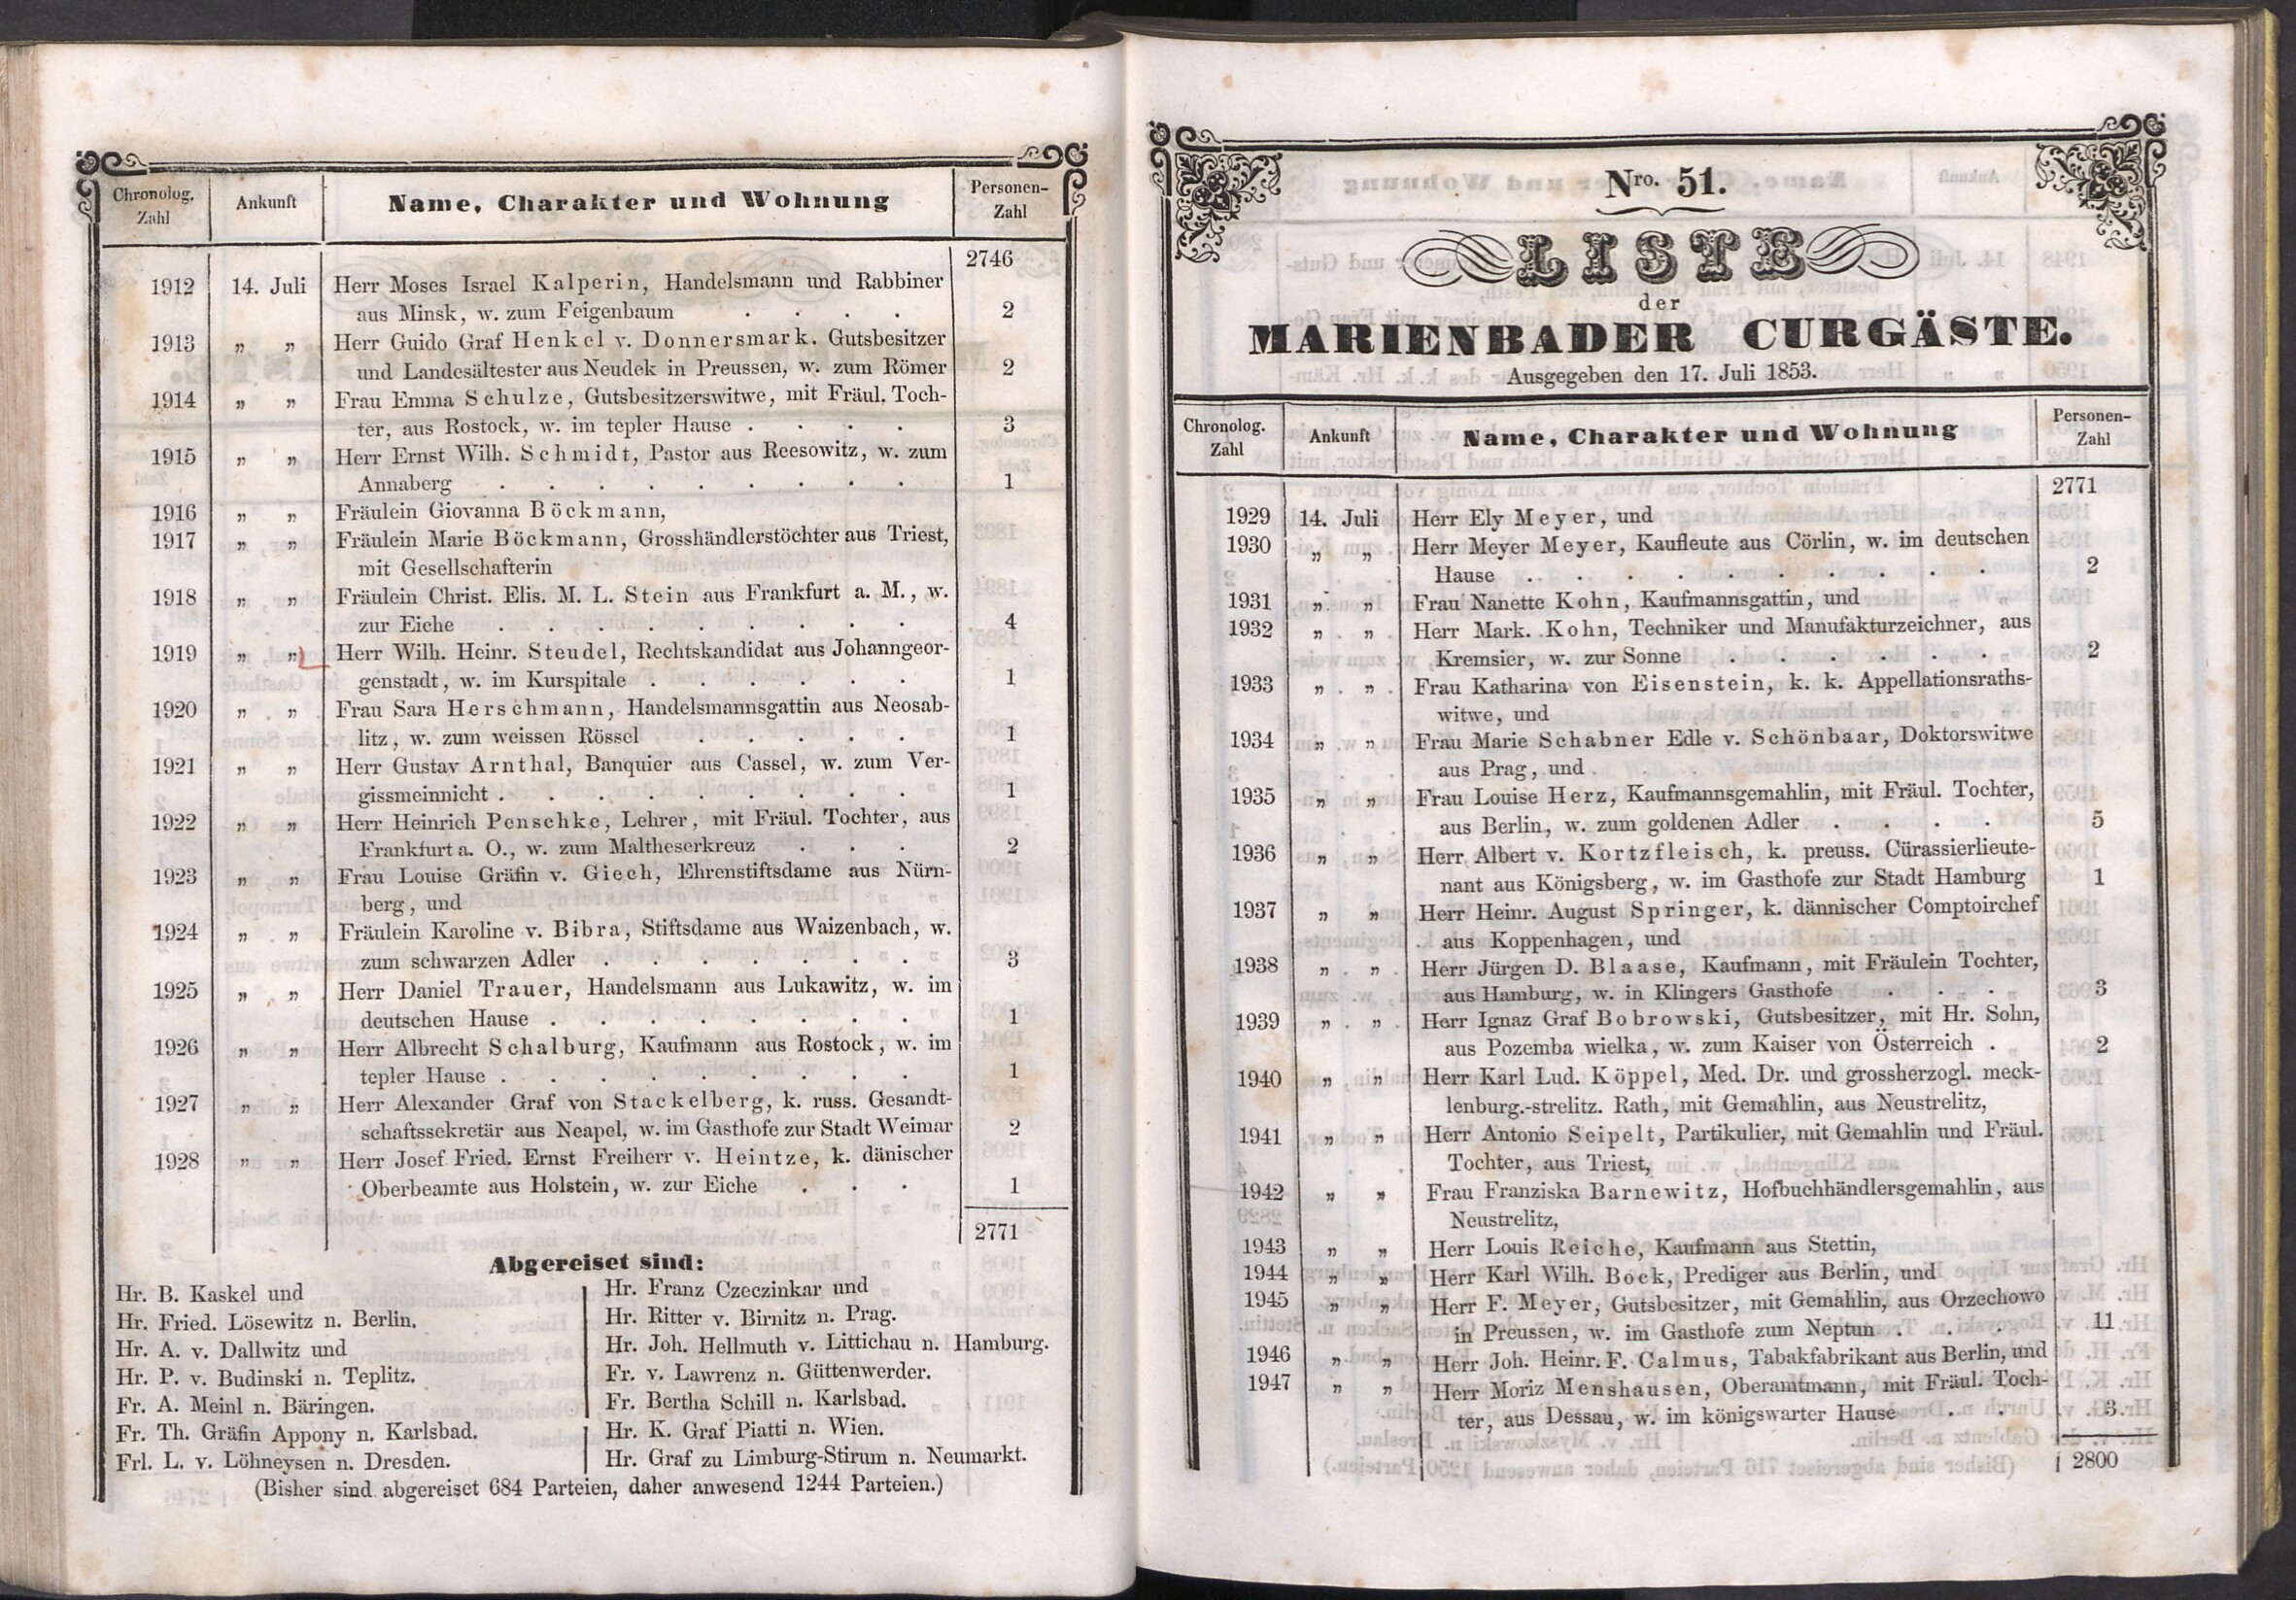 Chronolog. Zahl
Ankunft
Name, Charakter und Wohnung
Personen-Zahl
2746
1912 14. Juli Herr Moses Israel Kalperin, Handelsmann und Rabbiner
aus Minsk, w. zum Feigenbaum . . . . 2
1913 „ „ Herr Guido Graf Henkel v. Donnersmark. Gutsbesitzer
und Landesältester aus Neudek in Preussen, w. zum Römer 2
1914 „ „ Frau Emma Schulze, Gutsbesitzerswitwe, mit Fräul. Toch-
ter, aus Rostock, w. im tepler Hause . . . . 3
1915 „ „ Herr Ernst Wilh. Schmidt, Pastor aus Reesowitz, w. zum
Annaberg . . . . . . . . . 1
1916 „ „ Fräulein Giovanna Böckmann,
1917 „ „ Fräulein Marie Böckmann, Grosshändlerstöchter aus Triest,
mit Gesellschafterin
1918 „ „ Fräulein Christ. Elis. M. L. Stein aus Frankfurt a. M., w.
zur Eiche . . . . . . . . . 4
1919 „ „ Herr Wilh. Heinr. Steudel, Rechtskandidat aus Johanngeor-
genstadt, w. im Kurspitale . . . . . . 1
1920 „ „ Frau Sara Herschmann, Handelsmannsgattin aus Neosab-
litz, w. zum weissen Rössel . . . . . 1
1921 „ „ Herr Gustav Arnthal, Banquier aus Cassel, w. zum Ver-
gissmeinnicht . . . . . . . . . 1
1922 „ „ Herr Heinrich Penschke, Lehrer, mit Fräul. Tochter, aus
Frankfurt a. O., w. zum Maltheserkreuz . . . 2
1923 „ „ Frau Louise Gräfin v. Giech, Ehrenstiftsdame aus Nürn-
berg, und
1924 „ „ Fräulein Karoline v. Bibra, Stiftsdame aus Waizenbach, w.
zum schwarzen Adler . . . . . . . 3
1925 „ „ Herr Daniel Trauer, Handelsmann aus Lukawitz, w. im
deutschen Hause . . . . . . . . 1
1926 „ „ Herr Albrecht Schalburg, Kaufmann aus Rostock, w. im
tepler Hause . . . . . . . . . 1
1927 „ „ Herr Alexander Graf von Stackelberg, k. russ. Gesandt-
schaftssekretär aus Neapel, w. im Gasthofe zur Stadt Weimar 2
1928 „ „ Herr Josef Fried. Ernst Freiherr v. Heintze, k. dänischer
Oberbeamte aus Holstein, w. zur Eiche . . . 1
2771
Abgereiset sind:
Hr. B. Kaskel und
Hr. Fried. Lösewitz n. Berlin.
Hr. A. v. Dallwitz und
Hr. P. v. Budinski n. Teplitz.
Fr. A. Meinl n. Bäringen.
Fr. Th. Gräfin Appony n. Karlsbad.
Frl. L. v. Löhneysen n. Dresden.
Hr. Franz Czeczinkar und
Hr. Ritter v. Birnitz n. Prag.
Hr. Joh. Hellmuth v. Littichau n. Hamburg.
Fr. v. Lawrenz n. Güttenwerder.
Fr. Bertha Schill n. Karlsbad.
Hr. K. Graf Piatti n. Wien.
Hr. Graf zu Limburg-Stirum n. Neumarkt.
(Bisher sind abgereiset 684 Parteien, daher anwesend 1244 Parteien.)
Nro. 51.
LISTE
der
MARIENBADER CURGÄSTE.
Ausgegeben den 17. Juli 1853.
Chronolog. Zahl
Ankunft
Name, Charakter und Wohnung
Personen-Zahl
2771
1929 14. Juli Herr Ely Meyer, und
1930 „ „ Herr Meyer Meyer, Kaufleute aus Cörlin, w. im deutschen
Hause . . . . . . . . . . 2
1931 „ „ Frau Nanette Kohn, Kaufmannsgattin, und
1932 „ „ Herr Mark. Kohn, Techniker und Manufakturzeichner, aus
Kremsier, w. zur Sonne . . . . . . 2
1933 „ „ Frau Katharina von Eisenstein, k. k. Appellationsraths-
witwe, und
1934 „ „ Frau Marie Schabner Edle v. Schönbaar, Doktorswitwe
aus Prag, und
1935 „ „ Frau Louise Herz, Kaufmannsgemahlin, mit Fräul. Tochter,
aus Berlin, w. zum goldenen Adler . . . . 5
1936 „ „ Herr Albert v. Kortzfleisch, k. preuss. Cürassierlieute-
nant aus Königsberg, w. im Gasthofe zur Stadt Hamburg 1
1937 „ „ Herr Heinr. August Springer, k. dännischer Comptoirchef
aus Koppenhagen, und
1938 „ „ Herr Jürgen D. Blaase, Kaufmann, mit Fräulein Tochter,
aus Hamburg, w. in Klingers Gasthofe . . . 3
1939 „ „ Herr Ignaz Graf Bobrowski, Gutsbesitzer, mit Hr. Sohn,
aus Pozemba wielka, w. zum Kaiser von Österreich . 2
1940 „ „ Herr Karl Lud. Köppel, Med. Dr. und grossherzogl. meck-
lenburg.-strelitz. Rath, mit Gemahlin, aus Neustrelitz,
1941 „ „ Herr Antonio Seipelt, Partikulier, mit Gemahlin und Fräul.
Tochter, aus Triest,
1942 „ „ Frau Franziska Barnewitz, Hofbuchhändlersgemahlin, aus
Neustrelitz,
1943 „ „ Herr Louis Reiche, Kaufmann aus Stettin,
1944 „ „ Herr Karl Wilh. Bock, Prediger aus Berlin, und
1945 „ „ Herr F. Meyer, Gutsbesitzer, mit Gemahlin, aus Orzechowo
in Preussen, w. im Gasthofe zum Neptun . . . 11
1946 „ „ Herr Joh. Heinr. F. Calmus, Tabakfabrikant aus Berlin, und
1947 „ „ Herr Moriz Menshausen, Oberamtmann, mit Fräul. Toch-
ter, aus Dessau, w. im königswarter Hause . . 3
2800